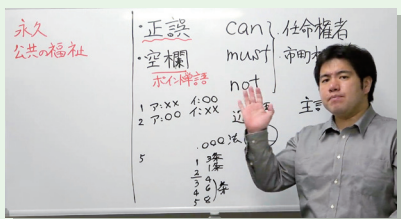 永久
公共の福祉
・正誤
・空欄
ポイント単語
1 ア:×× イ:○○
2 ア:○○ イ:××
5
1 3条
2 1条
3 4
4 6 条
5 8
can
must
not
・○○○法
・任命権者
・市町
主